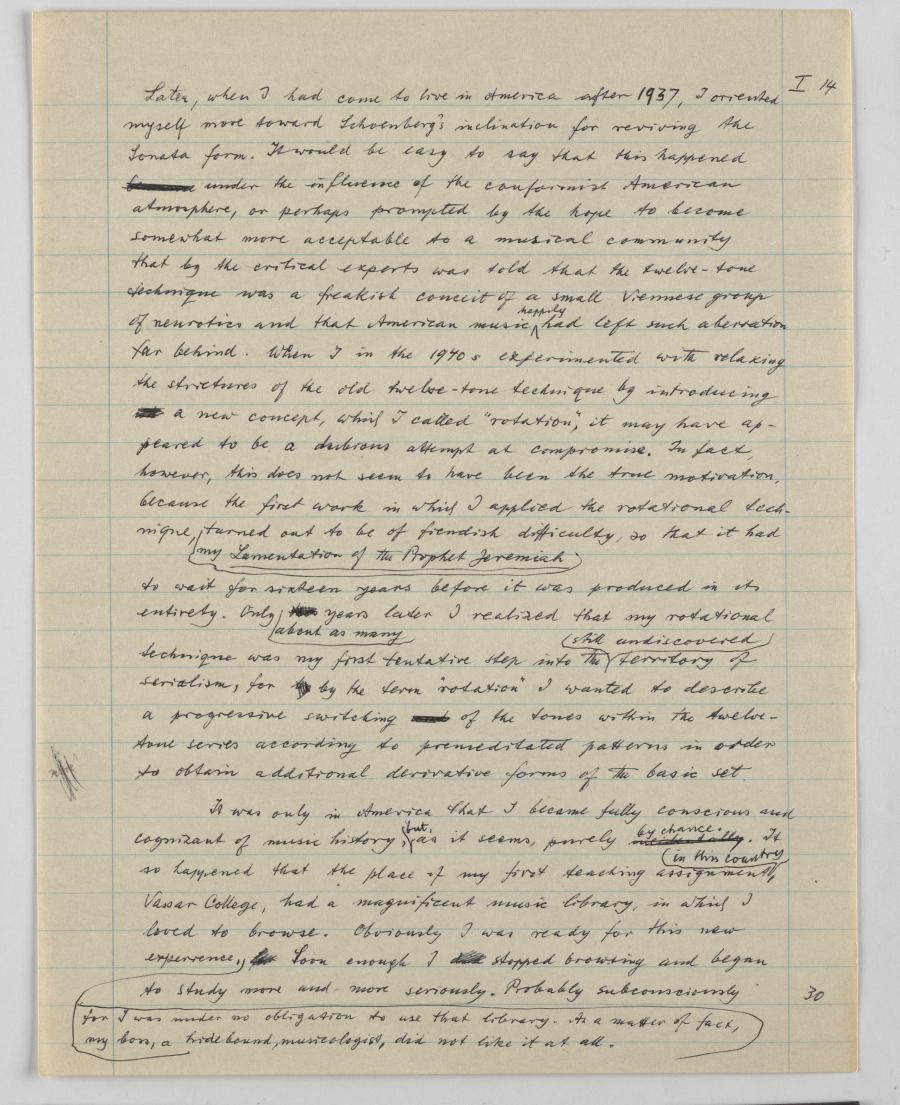 I 14
Later, when I had come to live in America after 1937, I oriented
myself more toward Schoenberg's inclination for reviving the
Sonata form. It would be easy to say that this happened
under the influence of the conformist American
atmosphere, or perhaps prompted by the hope to become
somewhat more acceptable to a musical community
that by the critical experts was told that the twelve-tone
technique was a freakish conceit of a small Viennese group
happily
of neurotics and that American music had left such aberration
far behind. When I in the 1940s experimented with relaxing
the strictures of the old twelve-tone technique by introducing
a new concept, which I called "rotation", it may have ap-
peared to be a dubious attempt at compromise. In fact,
however, this does not seem to have been the true motivation,
because the first work in which I applied the rotational tech-
nique, turned out to be of fiendish difficulty, so that it had
my Lamentation of the Prophet Jeremiah
to wait for sixteen years before it was produced in its
entirety. Only years later I realized that my rotational
about as many (still undiscovered)
technique was my first tentative step into the territory of
serialism, for by the term "rotation" I wanted to describe
a progressive switching of the tones within the twelve-
tone series according to premeditated patterns in order
to obtain additional derivative forms of the basic set.
It was only in America that I became fully conscious and
but, by chance.
cognizant of music history, as it seems, purely incidentally. It
(in this country
so happened that the place of my first teaching assignment,
Vassar College, had a magnificent music library, in which I
loved to browse. Obviously I was ready for this new
experience, Soon enough I stopped browsing and began
to study more and more seriously. Probably subconsciously
30
for I was under no obligation to use that library. As a matter of fact,
my boss, a hidebound, musicologist, did not like it at all.